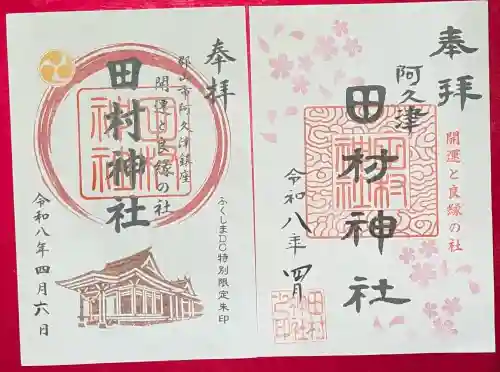 奉拝
郡山市阿久津鎮座
開運と良縁の社
田村神社
田村神社
ふくしまDC特別限定朱印
令和八年四月六日
奉拝
開運と良縁の社
阿久津
田村神社
田村神社
令和八年四月
田村神社之印